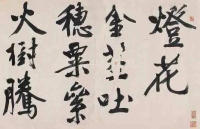 燈花
金吐
穗粟
火樹騰